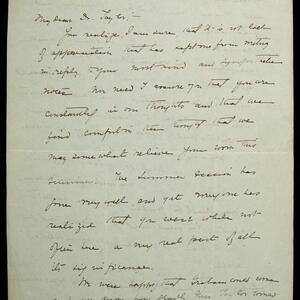 My dear Dr. Taylor:-
You realize, I am sure that it is not lack
of appreciation that has kept me from writing
in reply to your most kind and sympathetic
note. Nor need I assure you that you are
constantly in our thoughts and that we
find comfort in the thought that we
may somewhat relieve your worn this
summer. The Summer session has
gone very well and yet everyone has
realized that you were while not
often here a very real part of all
its significance.
We were happy that Graham could come